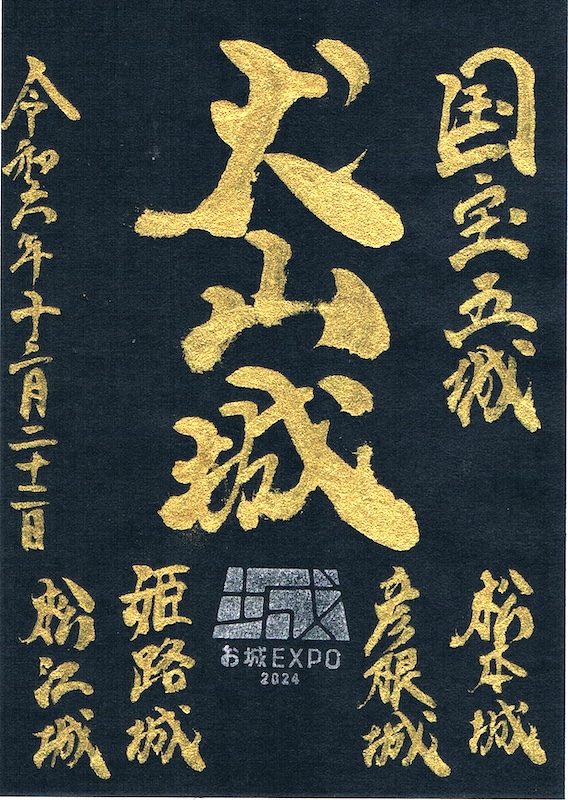 国宝五城
犬山城
令和六年十二月二十二日
松本城
彦根城
城
お城EXPO
2024
姫路城
松江城